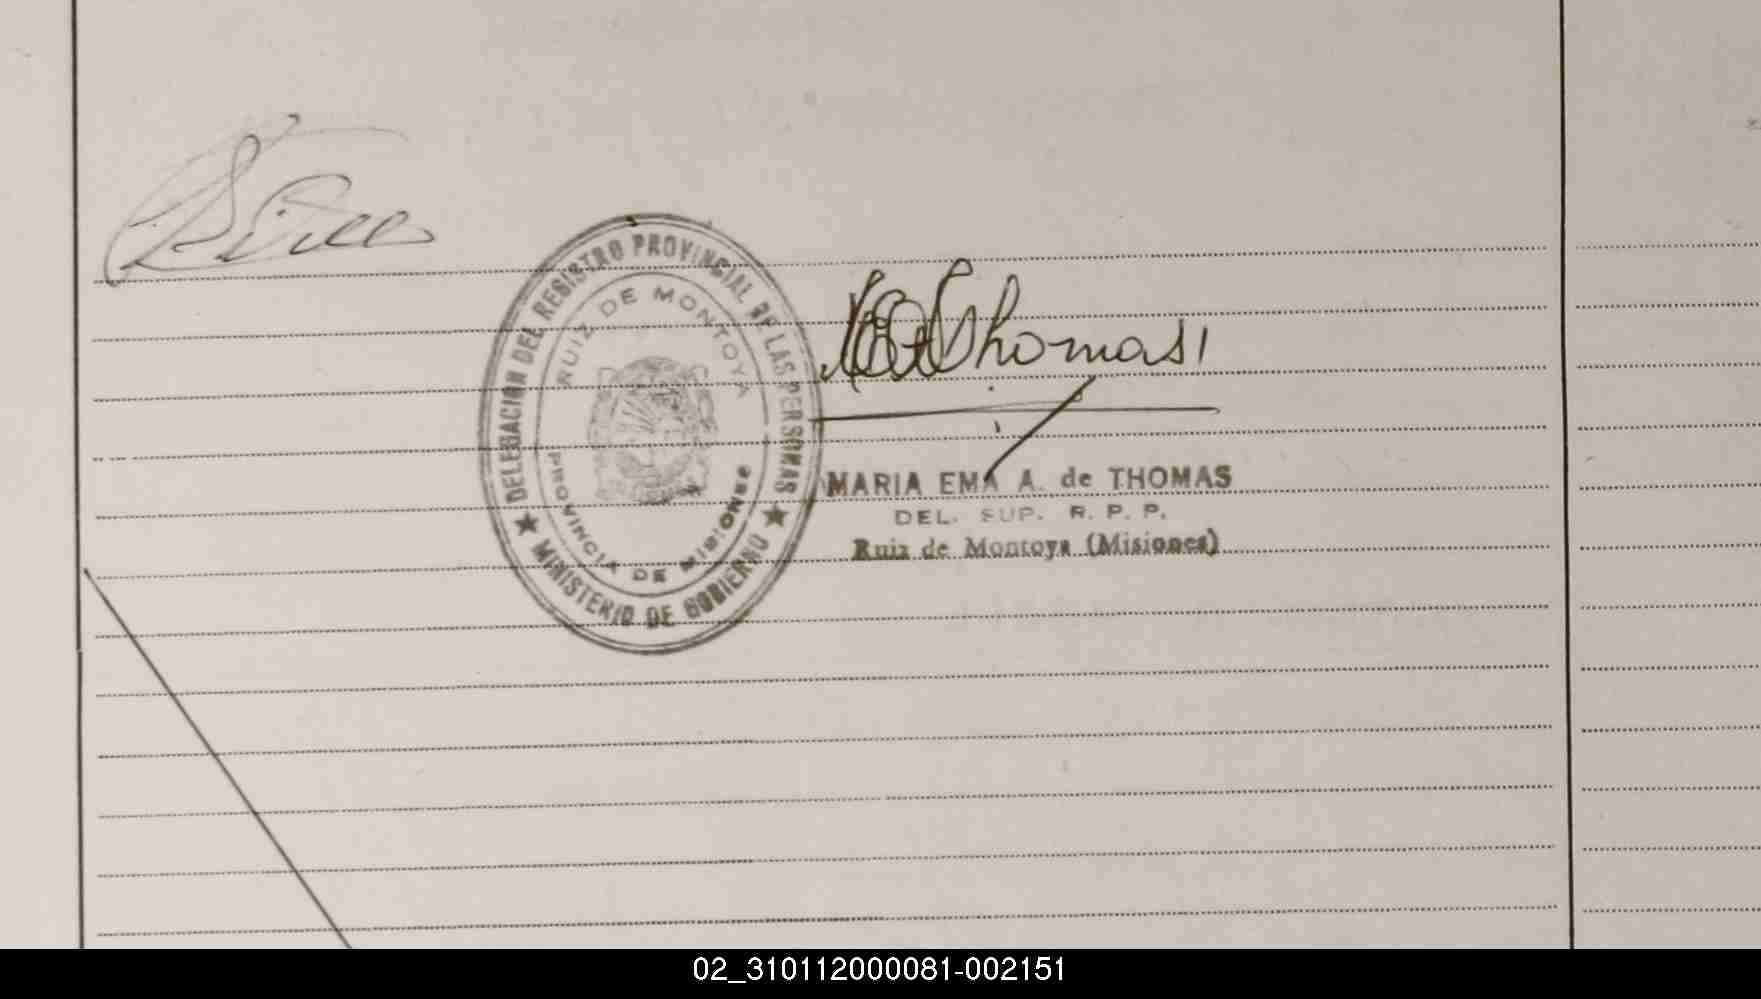 DELEGACION DEL REGISTRO PROVINCIAL DE LAS PERSONAS
RUIZ DE MONTOYA
PROVINCIA DE MISIONES
★ MINISTERIO DE GOBIERNO ★
Thomas
MARIA EMA A. de THOMAS
DEL. SUP. R. P. P.
Ruiz de Montoya (Misiones)
02_310112000081-002151